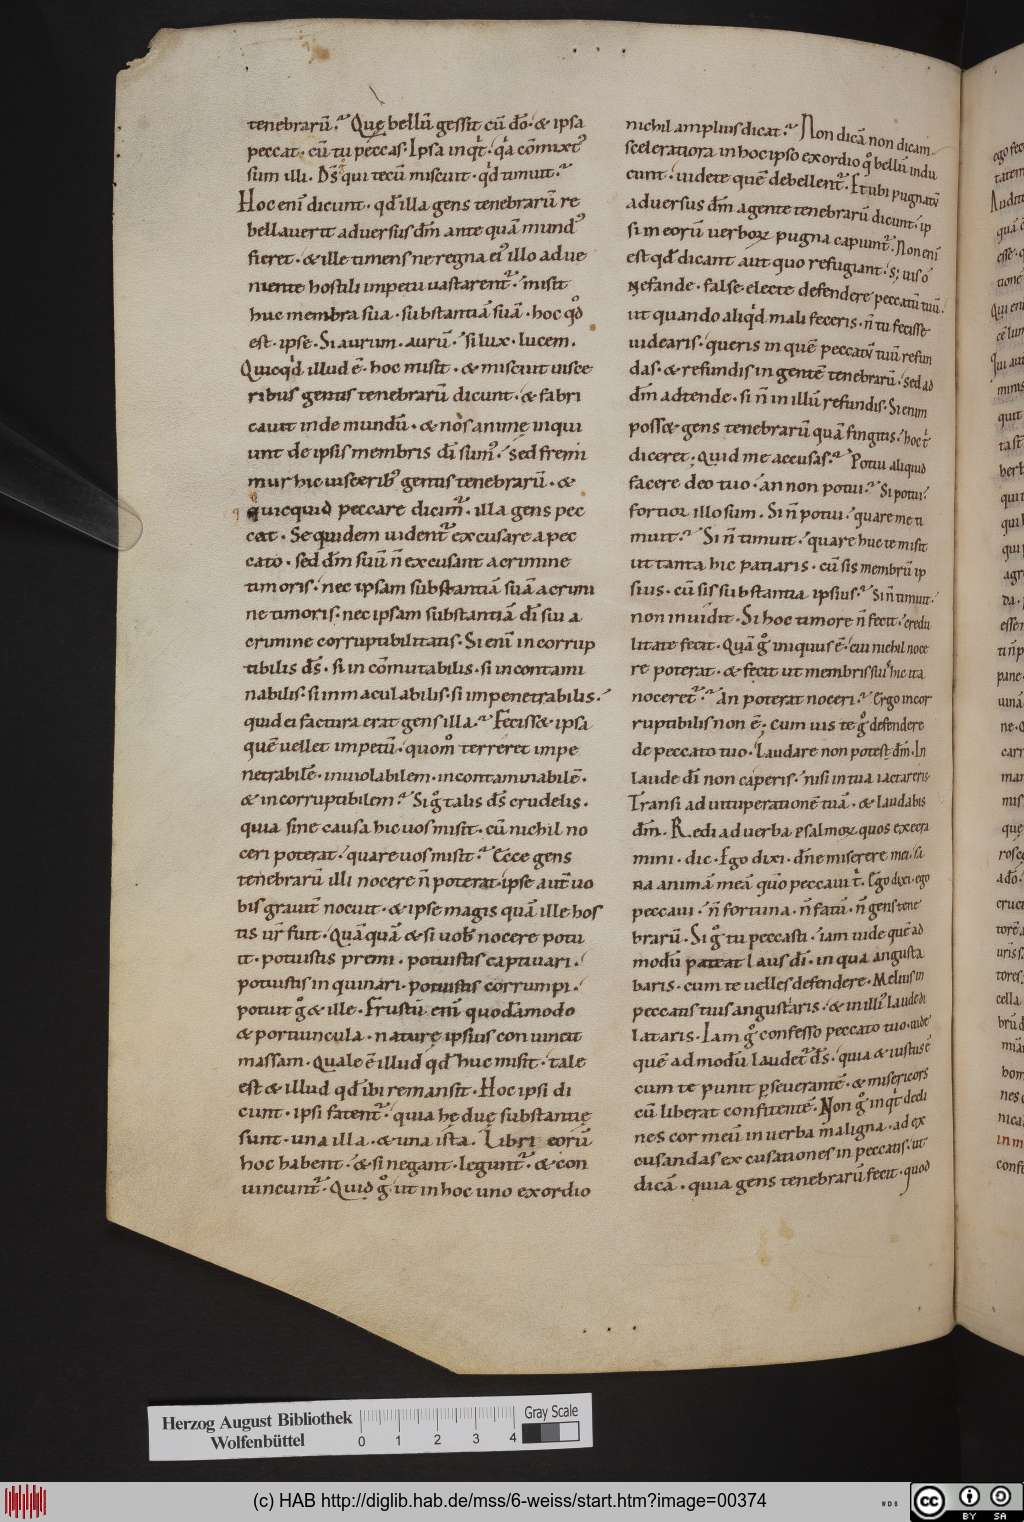 tenebrarũ. Quę bellũ gessit cũ dõ. & ipsa
peccat. cũ tu peccas. Ipsa inqt. qa cõmixtꝰ
sum illi. D̃s qui tecũ miscuit. qd timuit.
Hoc eni dicunt. qd illa gens tenebrarũ re
bellauerit aduersus dm̃ ante quã mundꝰ
fieret. & ille timens ne regna eiꝰ illo adue
niente hostili impetu uastarent. misit
huc membra sua. substantiã suã. hoc qd
est. ipse. Si aurum. aurũ. si lux. lucem.
Quicqd illud ẽ. hoc misit. & miscuit uisce
ribus gentis tenebrarũ dicunt. & fabri
cauit inde mundũ. & nos animę inqui
unt de ipsis membris di sumꝰ. Sed fremi
mur hic uisceribꝰ gentis tenebrarũ. &
quicquid peccare dicim. illa gens pec
cat. Se quidem uident excusare a pec
cato. sed dm̃ suũ ñ excusant a crimine
timoris. nec ipsam substantiã suã a crimi
ne timoris. nec ipsam substantiã di siu a
crimine corruptibilitatis. Si eni incorrup
tibilis ds̃. si incõmutabilis. si incontami
nabilis. si inmaculabilis. si impenetrabilis.
quid ei factura erat gens illa. Feciss& ipsa
quẽ uellet impetũ. quom̊ terreret impe
netrabilẽ. inuiolabilem. incontaminabilẽ.
& incorruptibilem. Si g̊ talis ds̃ crudelis.
quia sine causa hic uos misit. cũ nichil no
ceri poterat. quare uos misit. Ecce gens
tenebrarũ illi nocere ñ poterat. ipse autẽ uo
bis grauit̃ nocuit. & ipse magis quã ille hos
tis ur̃ fuit. Quãquã & si uob nocere potu
it. potuistis premi. potuistis captiuari.
potuistis inquinari. potuistis corrumpi.
potuit g̊ & ille. Frustũ eni quodãmodo
& portiuncula. naturę ipsius conuincit
massam. Quale ẽ illud qd huc misit. tale
est & illud qd ibi remansit. Hoc ipsi di
cunt. ipsi fatent. quia hę duę substantię
sunt. una illa. & una ista. Libri eorũ
hoc habent. & si negant. legunt. & con
uincunt. Quid g̊ ut in hoc uno exordio
nichil amplius dicat. Non dicã non dicam.
sceleratiora in hoc ipso exordio q̊ bellũ indu
cunt. uidete quẽ debellent. Et ubi pugnatũ
aduersus dm̃ a gente tenebrarũ dicunt. ip
si in eorũ uerboꝝ pugna capiunt. Non eni
est qd dicant aut quo refugiant.
Nefande. false electe defendere peccatũ tuũ.
ut quando aliqd mali feceris. ñ tu fecisse
uidearis. queris in quẽ peccatũ tuũ refun
das. & refundis in gentẽ tenebrarũ. Sed ad
dm̃ adtende. si ñ in illũ refundis. Si enim
poss& gens tenebrarũ quã fingitis. hoc t
diceret. Quid me accusas. Potui aliquid
facere deo tuo. an non potui. Si potui.
fortior illo sum. Si ñ potui. quare me ti
muit. Si ñ timuit. quare huc te misit
ut tanta hic patiaris. cũ sis membrũ ip
sius. cũ sis substantia ipsius. Si ñ timuit.
non inuidit. Si hoc timore ñ fecit. credu
litate fecit. Quã g̊ iniquus ẽ. cui nichil noce
re poterat. & fecit ut membris suis hic ita
noceret. An poterat noceri. Ergo incor
ruptibilis non ẽ. cum uis te g̊ defendere
de peccato tuo. laudare non potest dm̃. In
laude di non caperis. nisi in tua iactareris
Transi ad uituperationẽ tuã. & laudabis
dm̃. Redi ad uerba psalmoꝝ quos execra
mini. dic. Ego dixi. dñe miserere mei. sa
na animã meã qm̃o peccaui t. Ego dixi. ego
peccaui. ñ fortuna. ñ fatũ. ñ gens tene
brarũ. Si g̊ tu peccasti. iam uide quẽ ad
modũ pateat laus di. in qua angusta
baris. cum te uelles defendere. Melius in
peccatis tuis angustaris. & in illiꝰ laude di
lataris. Iam g̊ confesso peccato tuo. uide
quẽ ad modũ laudet ds̃. quia & iustus ẽ
cum te punit pseuerantẽ. & misericors
cũ liberat confitentẽ. Non g̊ inqt decli
nes cor meũ in uerba maligna. ad ex
cusandas excusationes in peccatis. ut
dicã. quia gens tenebrarũ fecit. quod
Herzog August Bibliothek
Wolfenbüttel
0 1 2 3 4
Gray Scale
(c) HAB http://diglib.hab.de/mss/6-weiss/start.htm?image=00374
WDB
cc BY SA